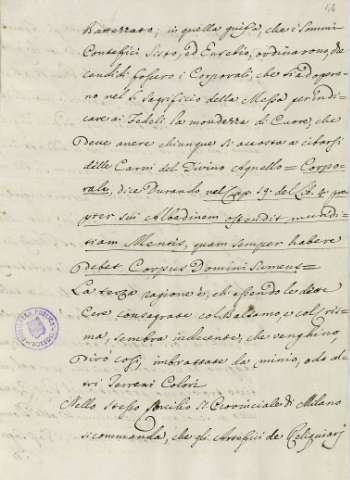 Battezzato; in quella guisa, che i Sommi
Pontefici Sisto, ed Eusebio, ordinarono, che
candidi fossero i Corporali, che si adopra-
no nel S. Sagrificio della Messa per indi-
care ai Fedeli la mondezza di Cuore, che
Deve avere chiunque si accosta a cibarsi
delle Carni del Divino Agnello = Corpo-
rale, dice Durando nel Cap. 29. del Lib. 4.
pter sui Albedinem ostendit mundi-
tiam Mentis, quam semper habere
Debet Corpus Domini Sumens =
La terza ragione è, che essendo le dette
Cere consegrate col Balsamo, e col Cris-
ma, sembra indecente, che venghino,
dirò così, imbrattate da minio, o da al-
tri Terreni Colori
Nello stesso Concilio Provinciale di Milano
si commanda, che gli Artefici de Reliquiarj